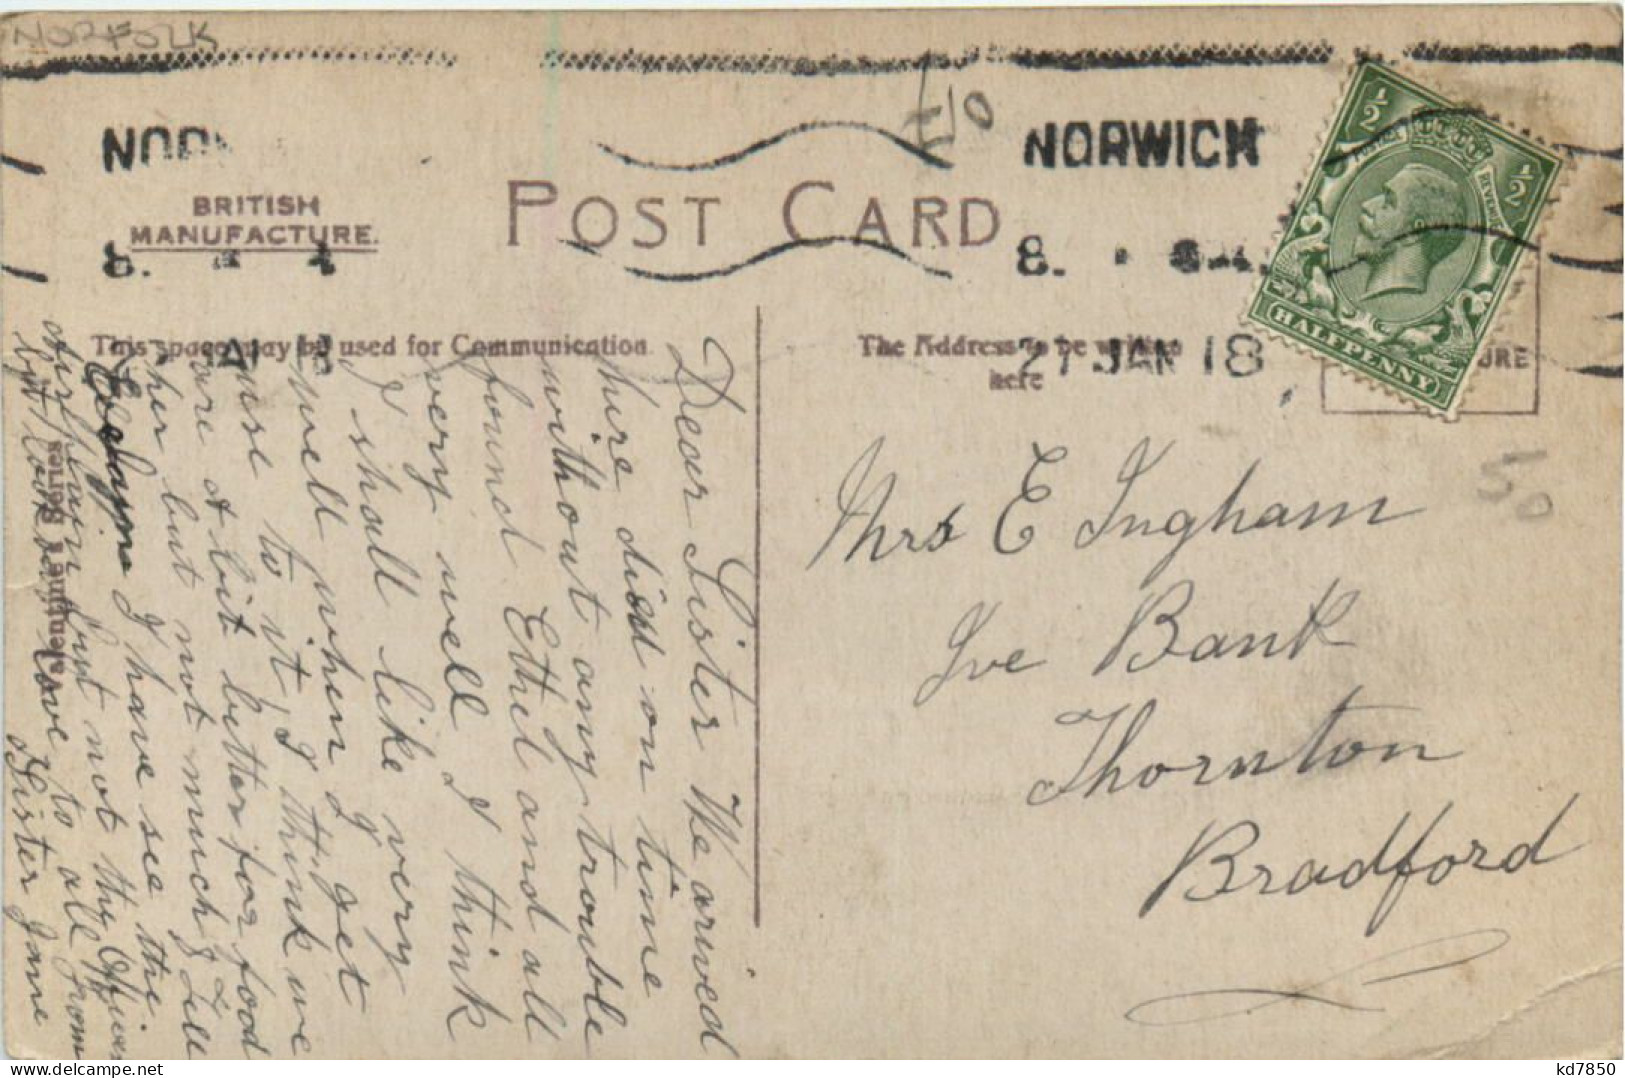 NORFOLK
NORWICH
£10
½ ½
BRITISH
MANUFACTURE.
POST CARD
8.
HALFPENNY
This space may be used for Communication
The Address to be written
here
27 JAN 18
50
Valentine's Series
Mrs E Ingham
Ive Bank
Thornton
Bradford
Dear Sister We arived
hire on time
without any trouble
found Ethel and all
very well I think
I shall like very
well when I get
use to it, I think we
are a bit better for food
her but not much I Tell
I have see the
Airplain but not the Officer
but look love to all from
Sister Jane
kd7850